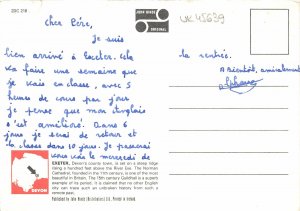 2DC 218
JOHN HINDE
ORIGINAL
UK45639
Cher Père,
Je suis
bien arrivé à Exeter. Cela
va faire une semaine que
je vais en classe, avec 5
heures de cours par jour
je pense que mon anglais
s'est amélioré. Dans
jours je serai de retour et
la classe dans 10 jours. Je penserai
vous le mercredi de
la rentrée.
A Bientôt, amicalement
DEVON
EXETER, Devon's county town, is set on a steep ridge
rising a hundred feet above the River Exe. The Norman
Cathedral, founded in the 11th century, is one of the most
beautiful in Britain. The 15th century Guildhall is a superb
example of its period. It is claimed that no other English
city can trace such an unbroken history from such a
remote past.
Published by John Hinde (Distributors) Ltd. Printed in Ireland.